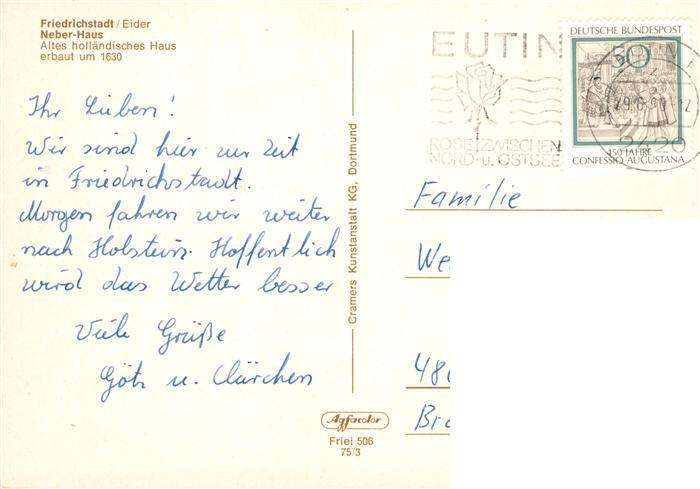 Friedrichstadt / Eider
Neber-Haus
Altes holländisches Haus
erbaut um 1630
Ihr Lieben!
Wir sind hier zur Zeit
in Friedrichstadt.
Morgen fahren wir weiter
nach Holstein. Hoffentlich
wird das Wetter besser
Viele Grüße
Götz u. Clärchen
Cramers Kunstanstalt KG, Dortmund
Agfacolor
Friei 506
75/3
EUTIN
ROSE ZWISCHEN
NORD- u. OSTSEE
DEUTSCHE BUNDESPOST
50
450 JAHRE
CONFESSIO AUGUSTANA
2420
Familie
We
480
Br